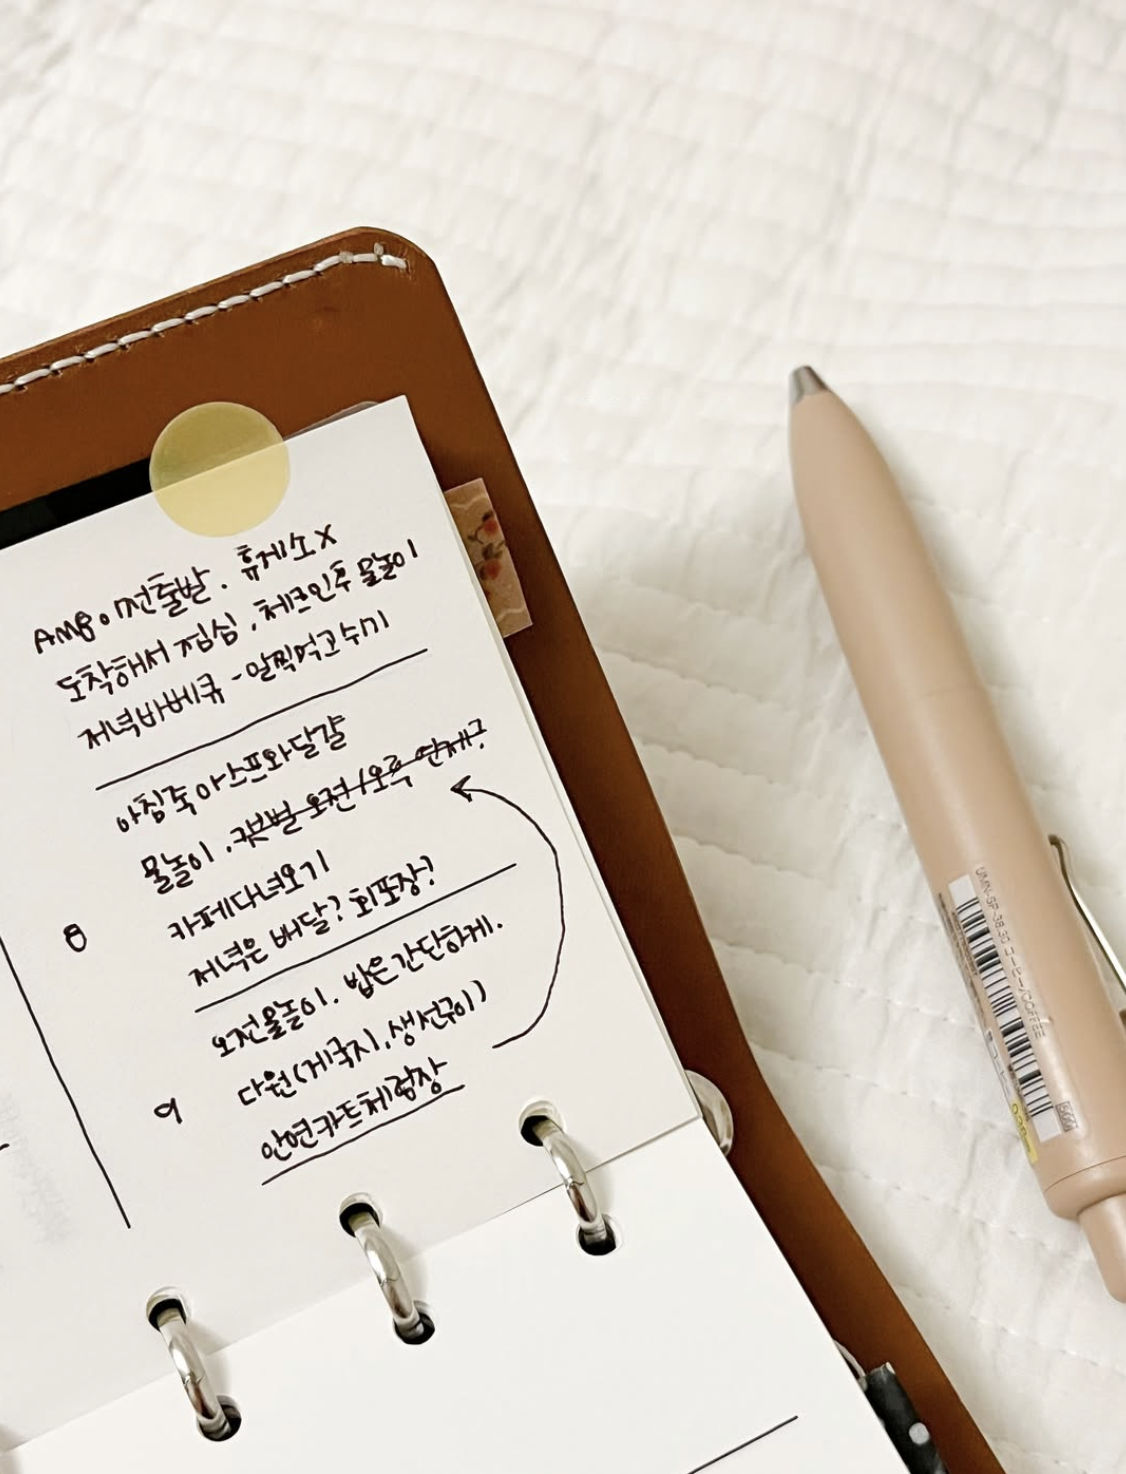 AM8이전출발. 휴게소X
도착해서 점심, 체크인후 물놀이
저녁바베큐 - 일찍먹고쉬기
아침죽아스프와달걀
물놀이. 오전/오륙 언제?
카페다녀오기
8
저녁은 배달? 회포장?
오전물놀이. 밥은간단하게.
9
다원(게국지, 생선구이)
안면카트체험장
UMN-SP-38.30 コーヒー/COFFEE